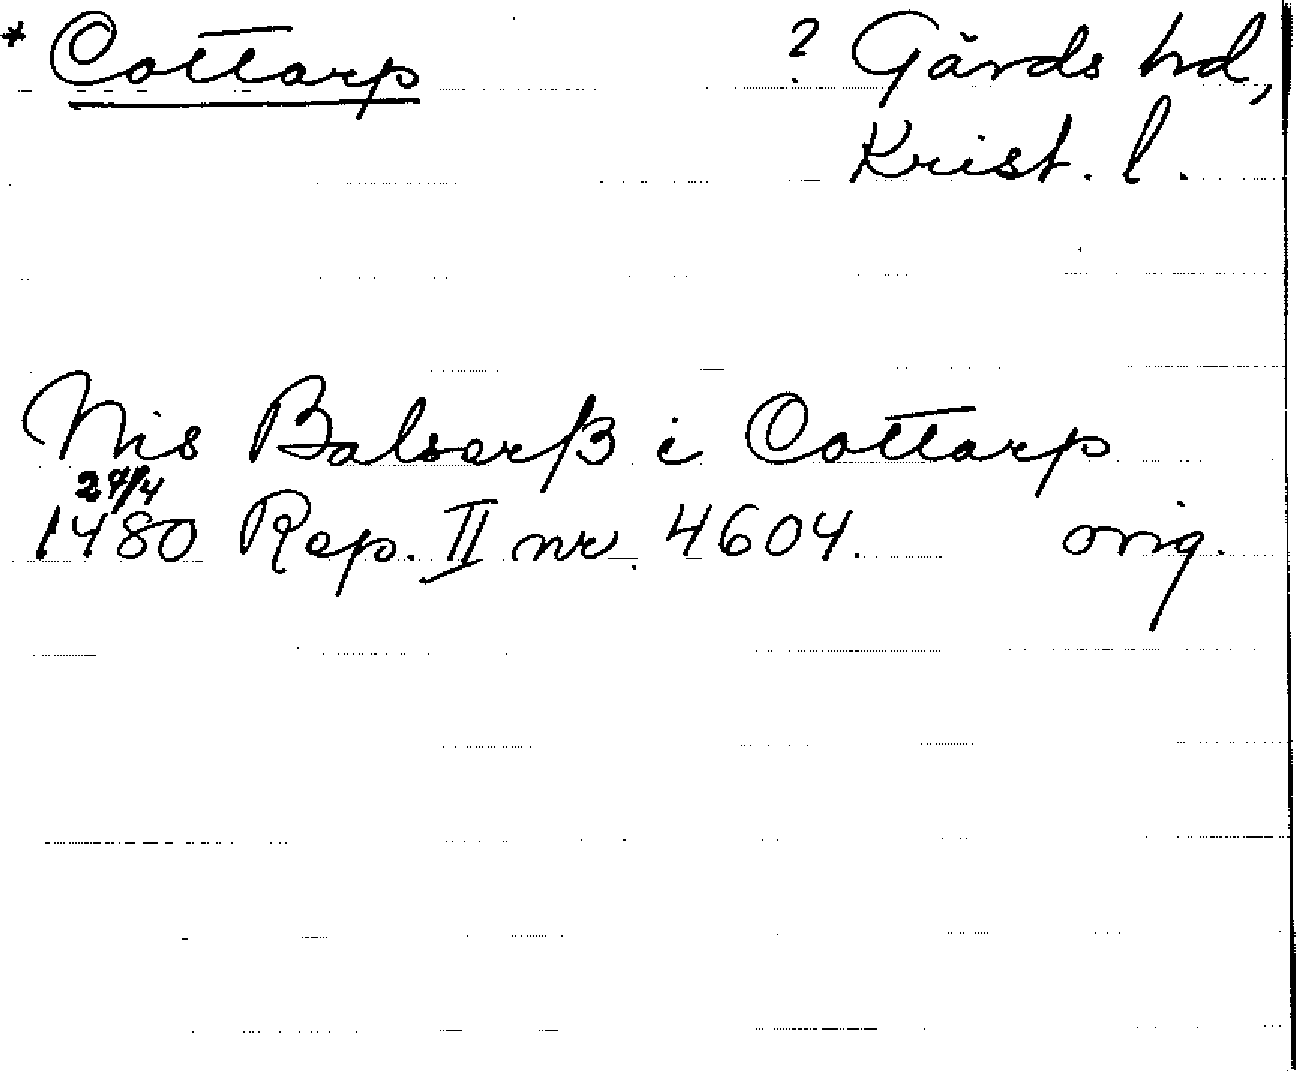 * Cottarp ? Gärds hd,
Krist. l.
Nis Balserß i Cottarp
24/4
1480 Rep. II nr. 4604. orig.